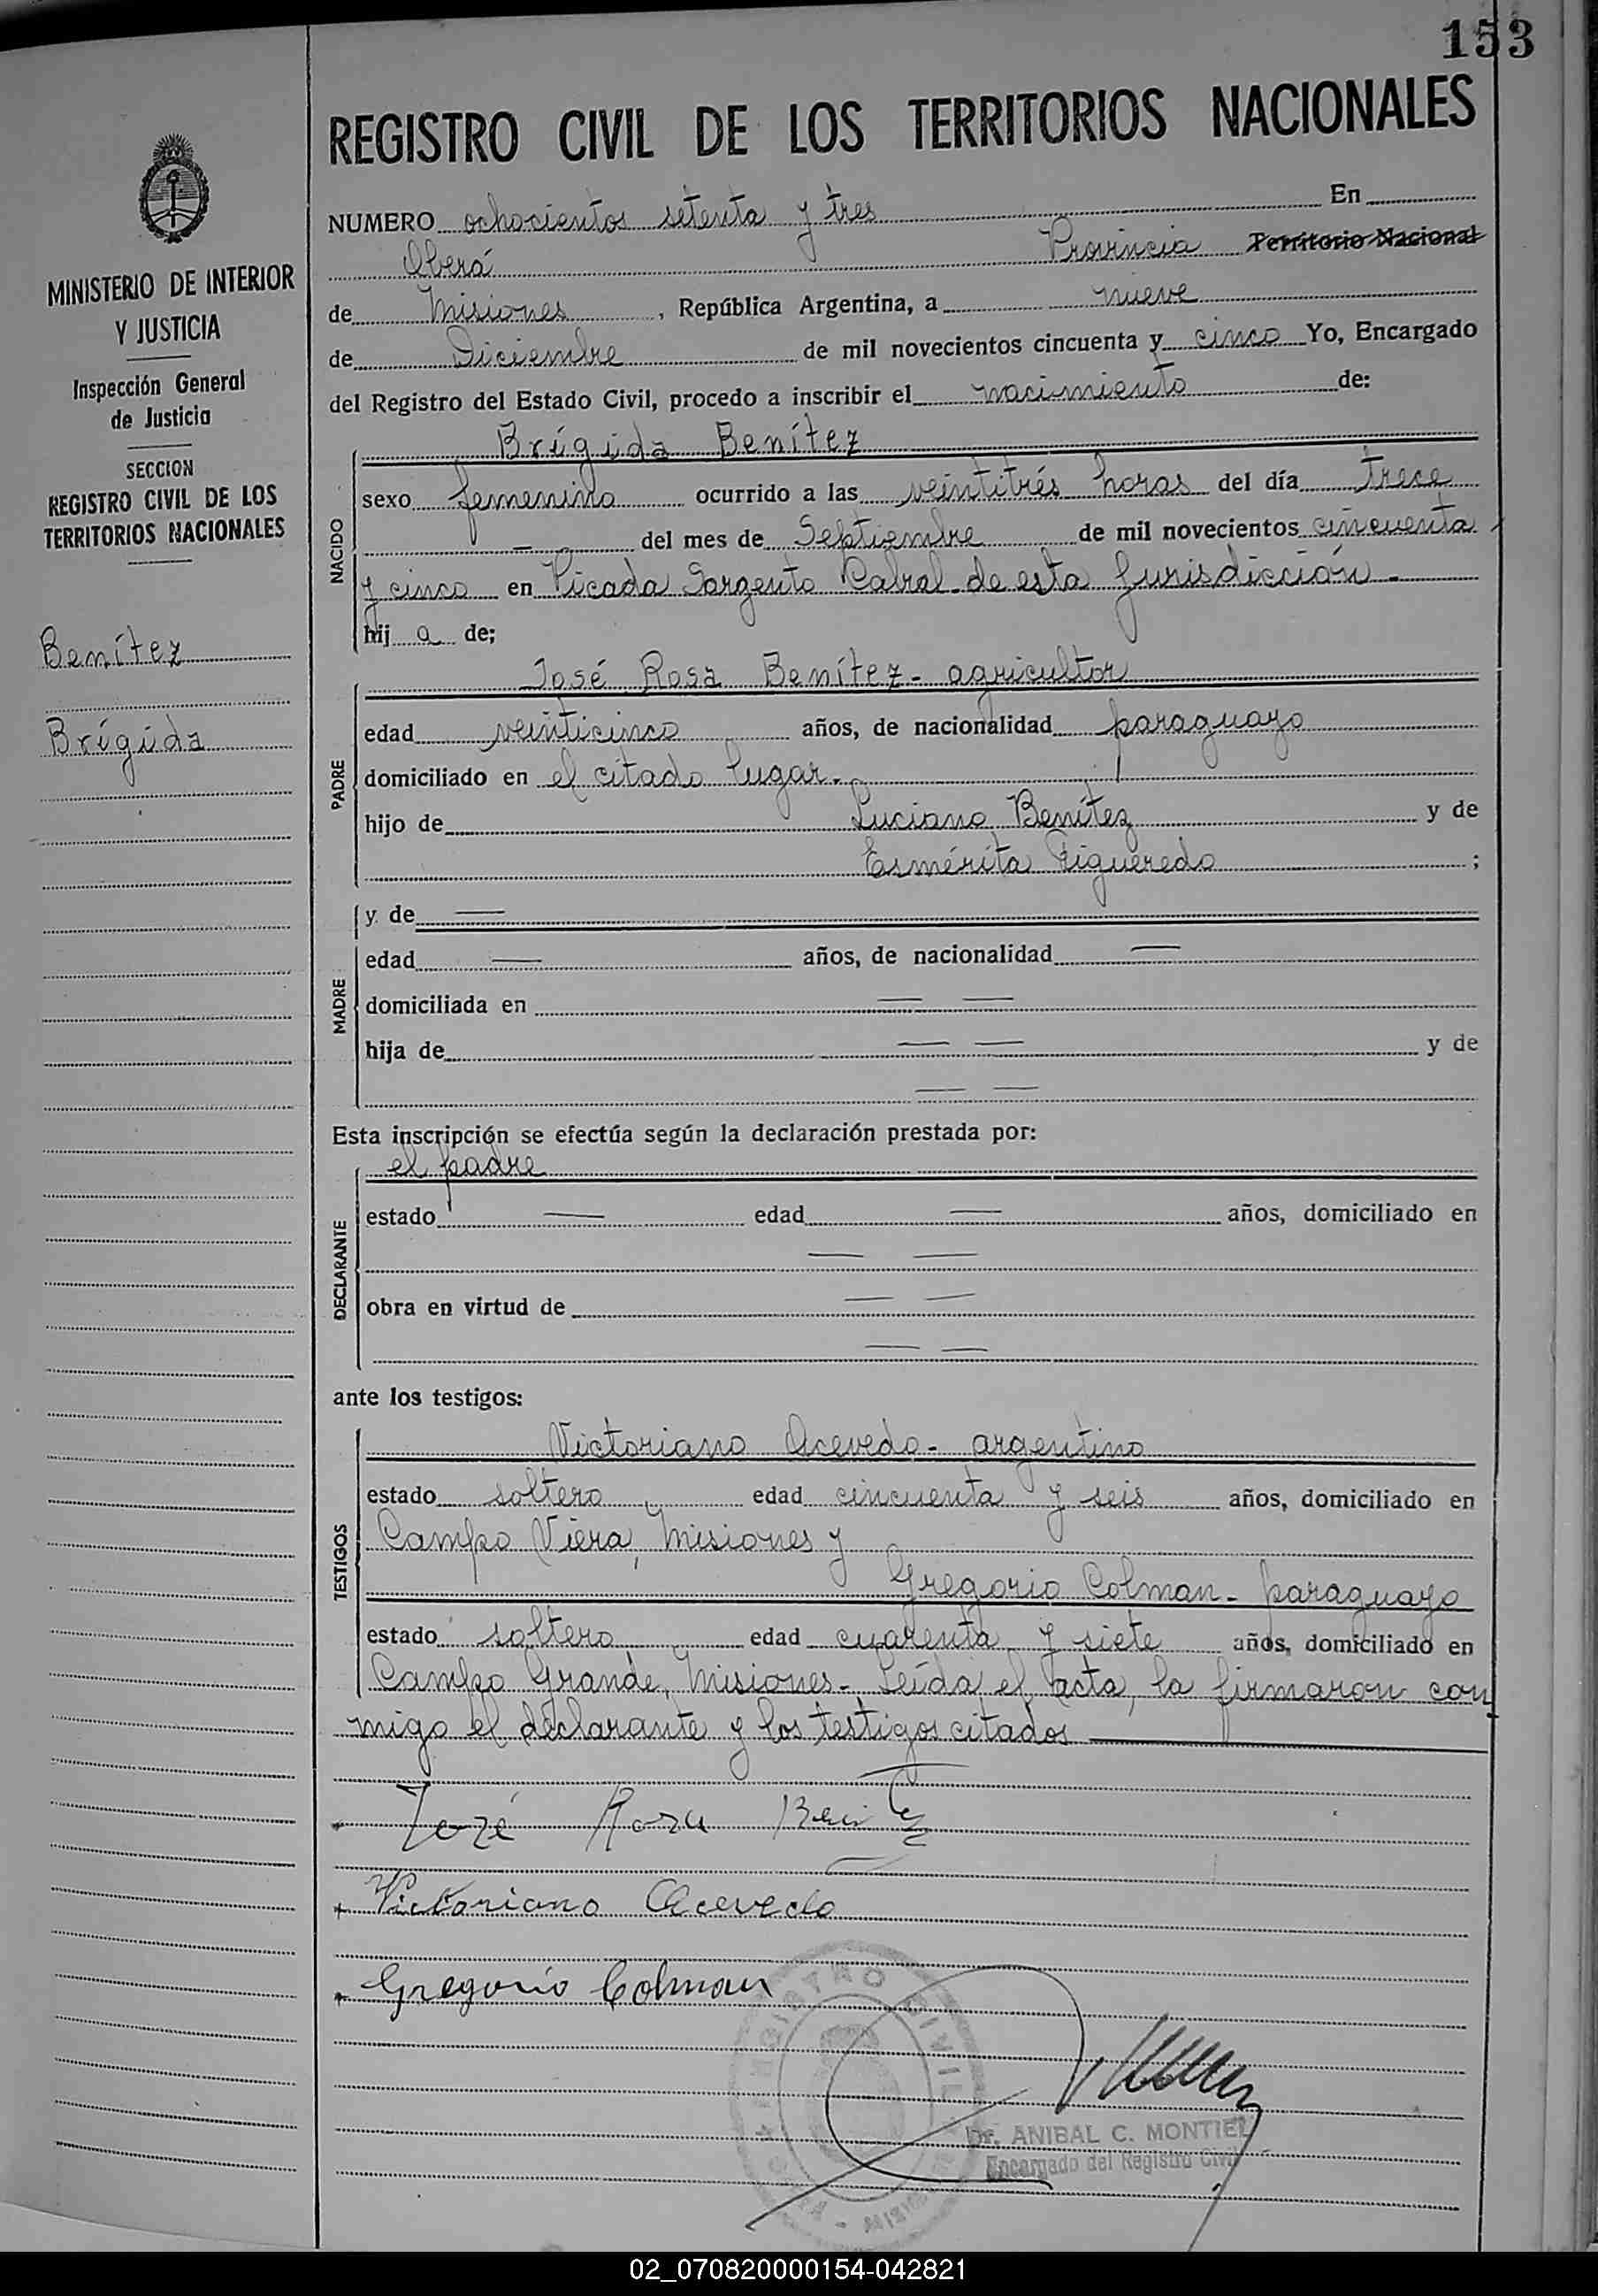 153
REGISTRO CIVIL DE LOS TERRITORIOS NACIONALES
MINISTERIO DE INTERIOR
Y JUSTICIA
Inspección General
de Justicia
SECCION
REGISTRO CIVIL DE LOS
TERRITORIOS NACIONALES
Benítez
Brígida
NUMERO ochocientos setenta y tres En
Oberá Provincia Territorio Nacional
de Misiones, República Argentina, a nueve
de Diciembre de mil novecientos cincuenta y cinco Yo, Encargado
del Registro del Estado Civil, procedo a inscribir el nacimiento de:
NACIDO
Brígida Benítez
sexo femenino ocurrido a las veintitrés horas del día trece
— del mes de Septiembre de mil novecientos cincuenta
y cinco en Picada Sargento Cabral de esta Jurisdicción.-
hij a de;
PADRE
José Rosa Benítez - agricultor
edad veinticinco años, de nacionalidad paraguayo
domiciliado en el citado lugar.-
hijo de Luciano Benítez y de
Esmérita Figueredo ;
MADRE
y de —
edad — años, de nacionalidad —
domiciliada en — —
hija de — — y de
— —
Esta inscripción se efectúa según la declaración prestada por:
DECLARANTE
el padre
estado — edad — años, domiciliado en
— —
obra en virtud de — —
— —
ante los testigos:
TESTIGOS
Victoriano Acevedo - argentino
estado soltero edad cincuenta y seis años, domiciliado en
Campo Viera, Misiones y
Gregorio Colman - paraguayo
estado soltero edad cuarenta y siete años, domiciliado en
Campo Grande, Misiones.- Leída el acta, la firmaron con
migo el declarante y los testigos citados
José Rosa Benitez
Victoriano Acevedo
Gregorio Colman
REGISTRO CIVIL
Dr. ANIBAL C. MONTIEL
Encargado del Registro Civil
02_070820000154-042821